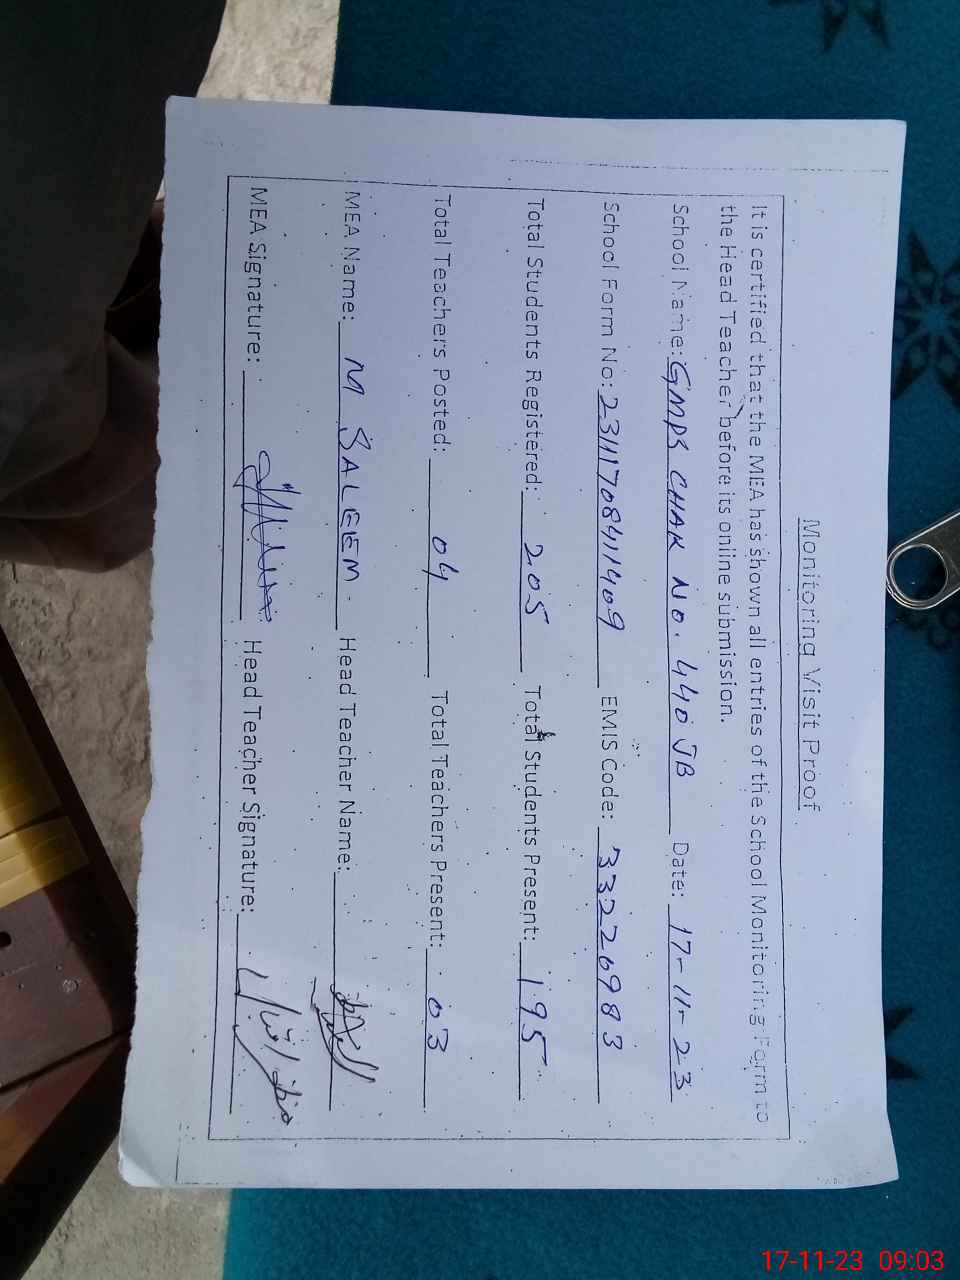 Monitoring Visit Proof
It is certified that the MEA has shown all entries of the School Monitoring Form to
the Head Teacher before its online submission.
School Name: GMPS CHAK NO. 440 JB Date: 17-11-23
School Form No: 23111708411409 EMIS Code: 33220983
Total Students Registered: 205 Total Students Present: 195
Total Teachers Posted: 04 Total Teachers Present: 03
MEA Name: M SALEEM Head Teacher Name:
MEA Signature: Head Teacher Signature:
17-11-23 09:03